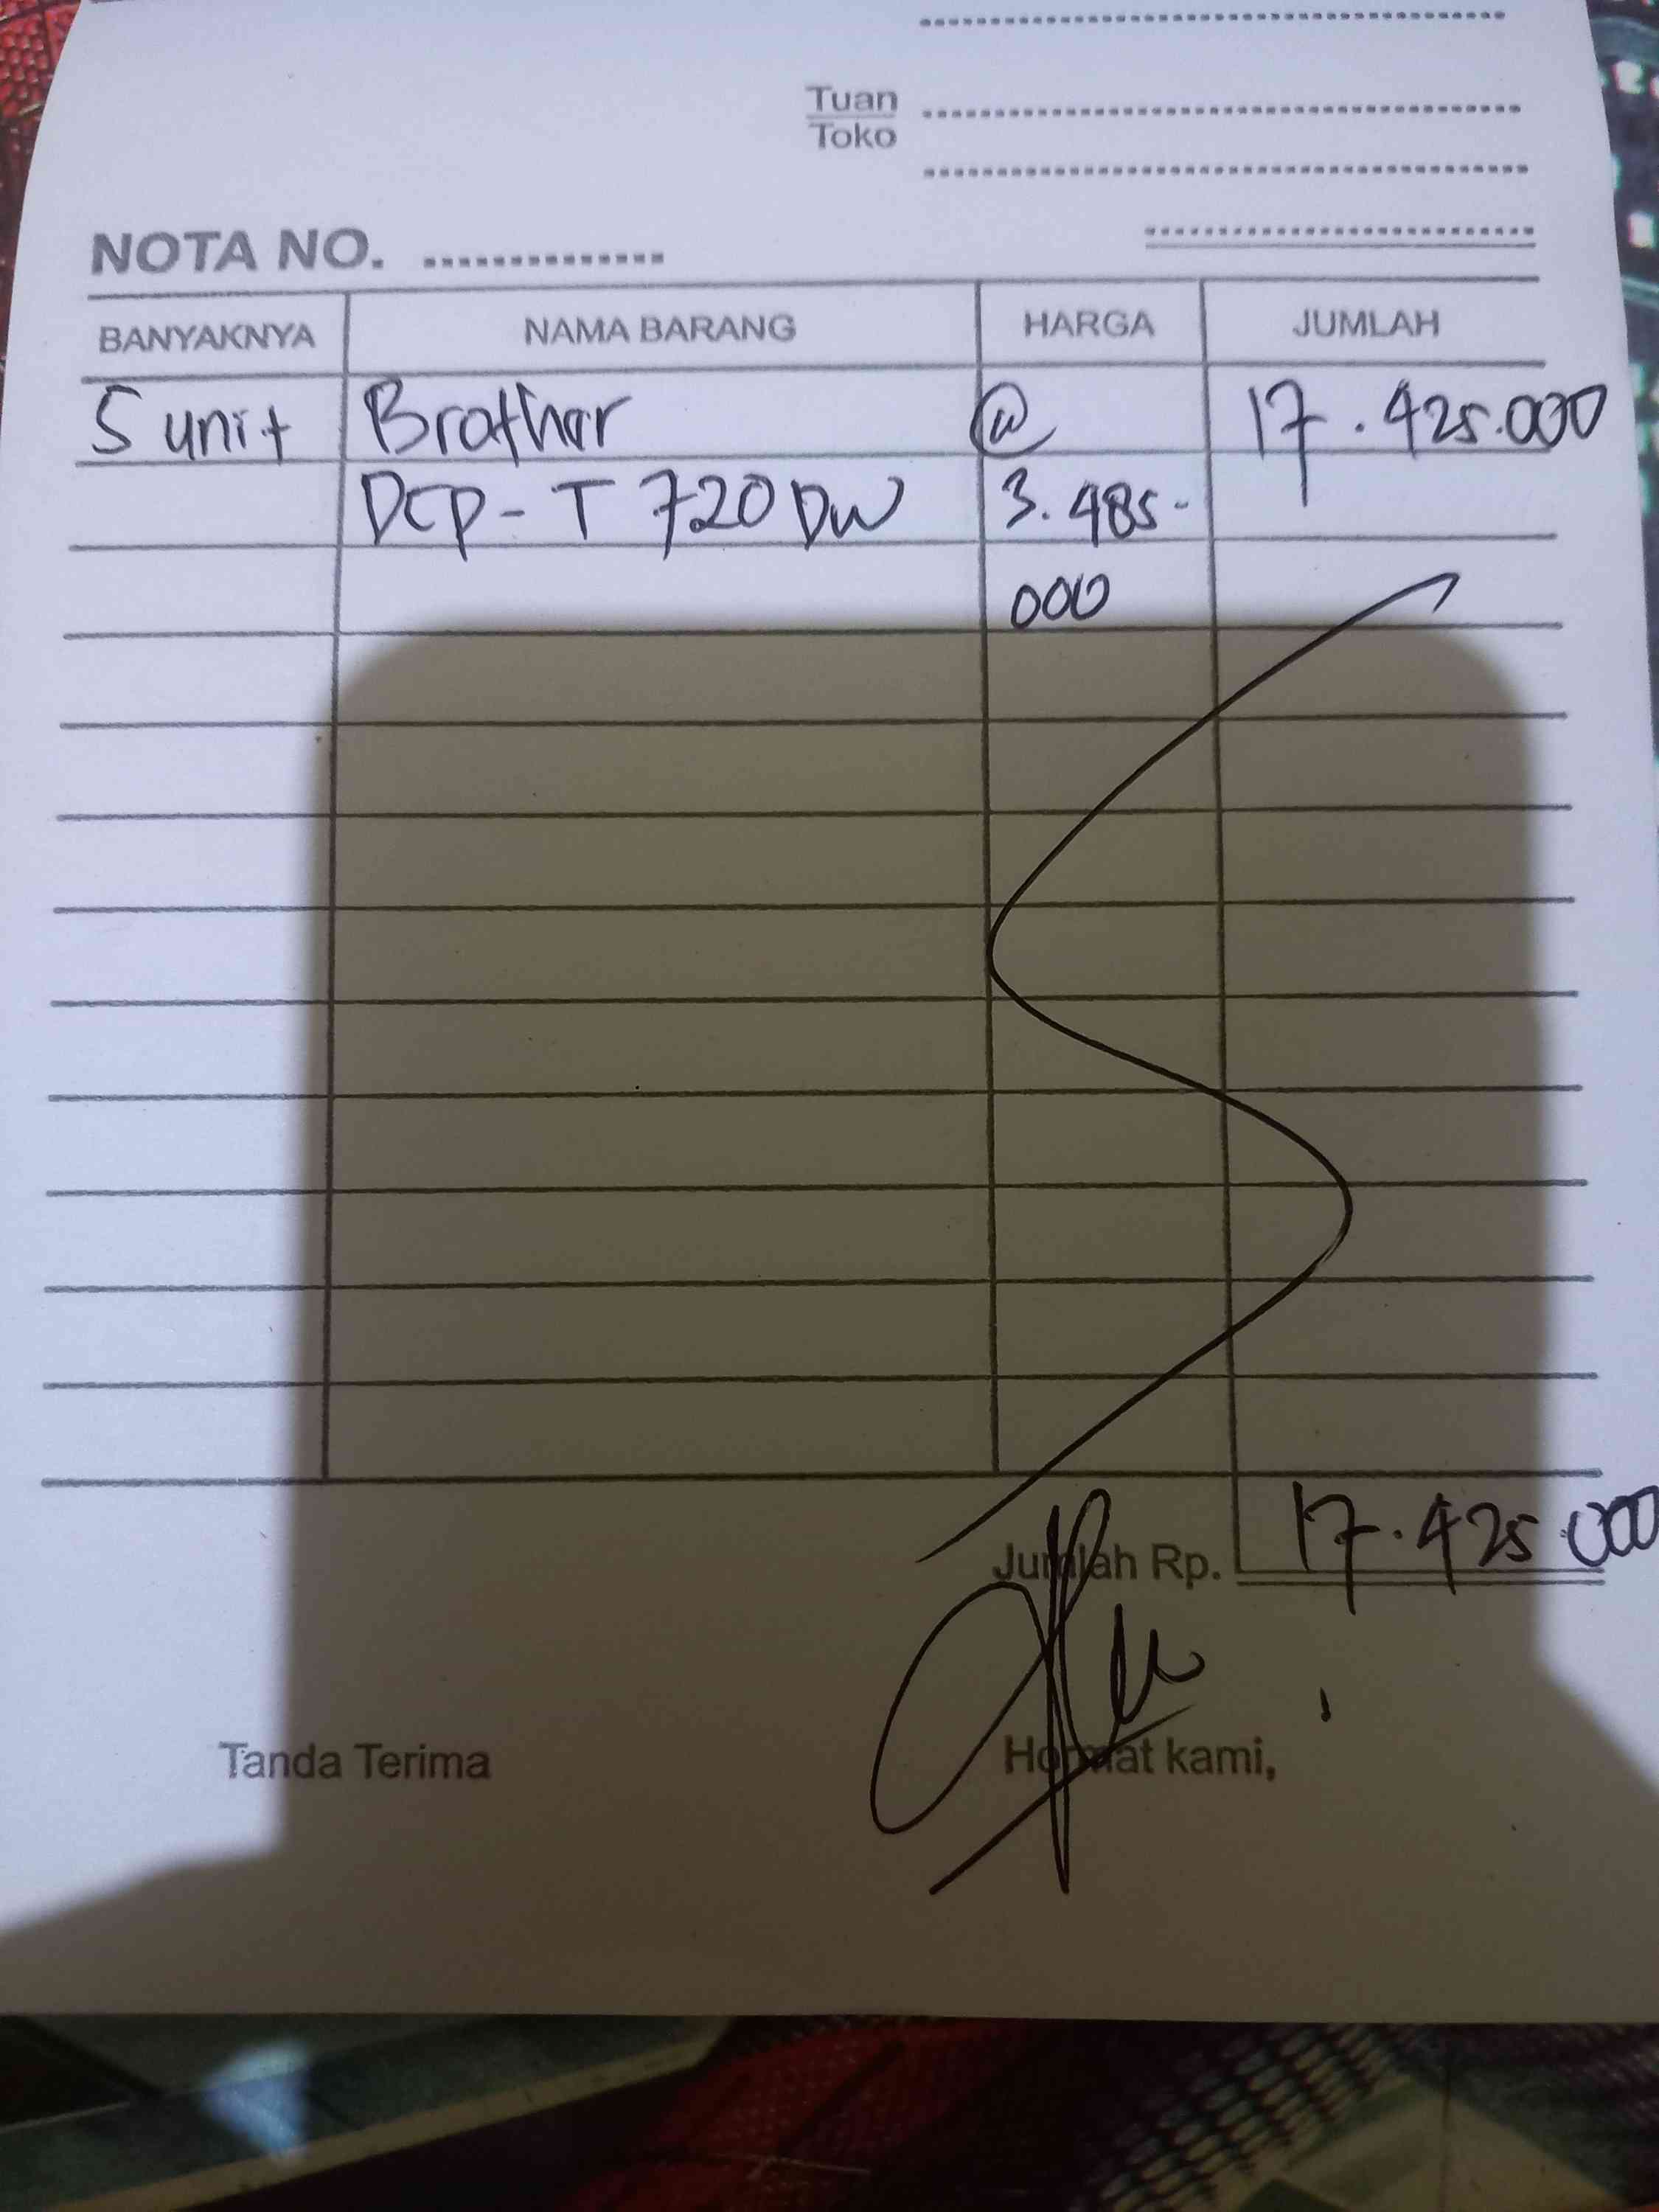 Tuan
Toko
NOTA NO. ..............
BANYAKNYA NAMA BARANG HARGA JUMLAH
5 unit Brother @ 17.425.000
DCP-T 720 DW 3.485-
000
Jumlah Rp. 17.425.000
Tanda Terima Hormat kami,